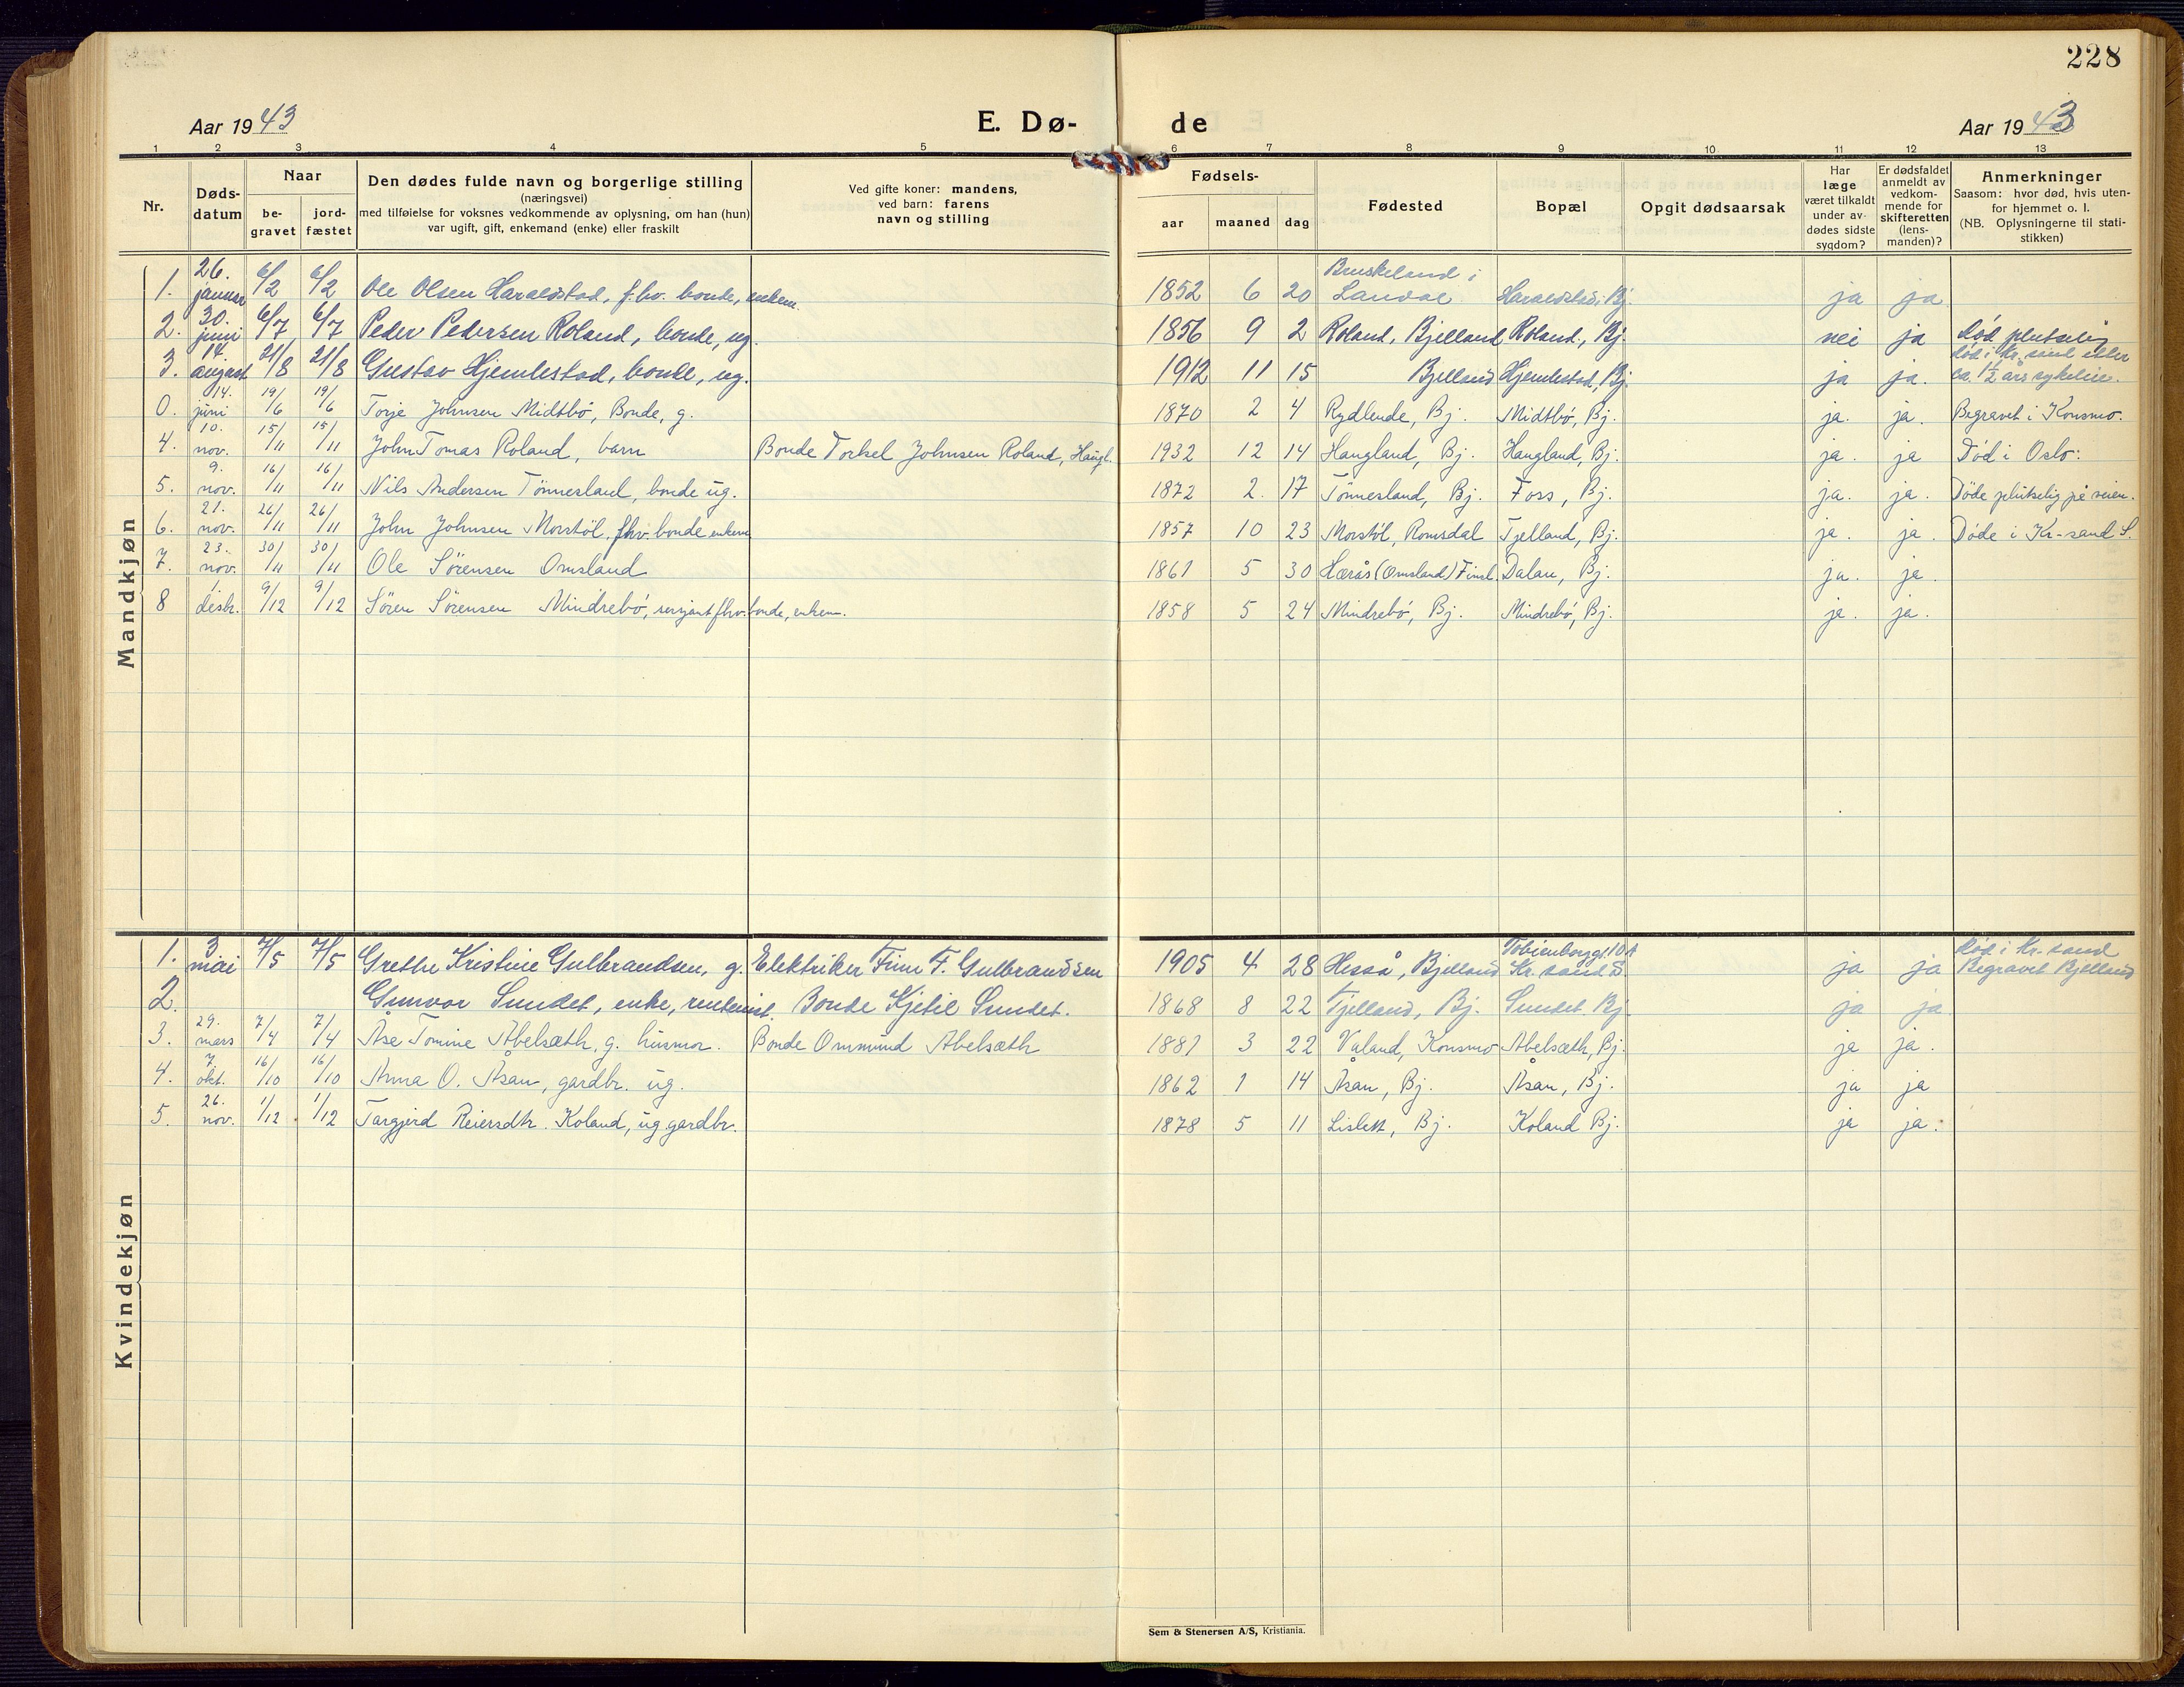 228
Aar 1943 E. Dø- de Aar 1943
1 2 3 4 5 6 7 8 9 10 11 12 13
Nr.
Døds-
datum
Naar
be-
gravet
jord-
fæstet
Den dødes fulde navn og borgerlige stilling
(næringsvei)
med tilføielse for voksnes vedkommende av oplysning, om han (hun)
var ugift, gift, enkemand (enke) eller fraskilt
Ved gifte koner: mandens,
ved barn: farens
navn og stilling
Fødsels-
aar maaned dag
Fødested
Bopæl
Opgit dødsaarsak
Har
læge
været tilkaldt
under av-
dødes sidste
sygdom?
Er dødsfaldet
anmeldt av
vedkom-
mende for
skifteretten
(lens-
manden)?
Anmerkninger
Saasom: hvor død, hvis uten-
for hjemmet o. l.
(NB. Oplysningerne til stati-
stikken)
Mandkjøn
1. 26. januar 6/2 6/2 Ole Olsen Haraldstad, f.hv. bonde, enkem. 1852 6 20 Bruskeland i Laudal Haraldstad, Bj. ja ja
2. 30. juni 6/7 6/7 Peder Pedersen Roland, bonde, ug. 1856 9 2 Roland, Bjelland Roland, Bj. nei ja død plutselig
3. 14. august 21/8 21/8 Gustav Hjemlestad, bonde, ug. 1912 11 15 Bjelland Hjemlestad, Bj. ja ja. død i Kr.sand etter ca. 1½ års sykeleie.
0. 14. juni 19/6 19/6 Torje Johnsen Midtbö, Bonde, g. 1870 2 4 Rydlende, Bj. Midtbö, Bj. ja. ja. Begravet i Konsmo.
4. 10. nov. 15/11 15/11 John Tomas Roland, barn Bonde Torkel Johnsen Roland, Haugl. 1932 12 14 Haugland, Bj. Haugland, Bj. ja. ja Död i Oslo.
5. 9. nov. 16/11 16/11 Nils Andersen Tönnesland, bonde ug. 1872 2. 17 Tönnesland, Bj. Foss, Bj. ja. ja. Döde plutselig på veien.
6. 21. nov. 26/11 26/11 John Johnsen Morstöl, fhv. bonde enkem. 1857 10 23 Morstöl, Romsdal Tjelland, Bj. ja. ja. Döde i Kr-sand S.
7. 23. nov. 30/11 30/11 Ole Sörensen Omsland 1861 5 30 Hærås (Omsland) Finsl. Dalan, Bj. ja. ja.
8 1. desbr. 9/12 9/12 Sören Sörensen Mindrebö, sersjant fhv. bonde, enkem. 1858 5 24 Mindrebö, Bj. Mindrebö, Bj. ja. ja.
Kvindekjøn
1. 3 mai 7/5 7/5 Grethe Kristine Gulbrandsen, g. Elektriker Finn F. Gulbrandsen 1905 4 28 Hesså, Bjelland Tobienborggt. 10A Kr.sand S ja ja død i Kr.sand Begravet Bjelland
2. Gunvor Sundet, enke, rentenist. Bonde Kjetil Sundet. 1868 8 22 Tjelland, Bj. Sundet Bj. ja ja.
3. 29. mars 7/4 7/4 Åse Tomine Abelsæth, g. husmor. Bonde Ommund Abelsæth 1881 3 22 Valand, Konsmo Abelsæth, Bj. ja ja.
4. 7 okt. 16/10 16/10 Anna O. Åsan, gardbr. ug. 1862 1 14 Åsan, Bj. Åsan, Bj. ja ja
5. 26. nov. 1/12 1/12 Targjerd Reiersdtr. Koland, ug gardbr. 1878 5 11 Lislett, Bj. Koland Bj. ja ja.
Sem & Stenersen A/S, Kristiania.